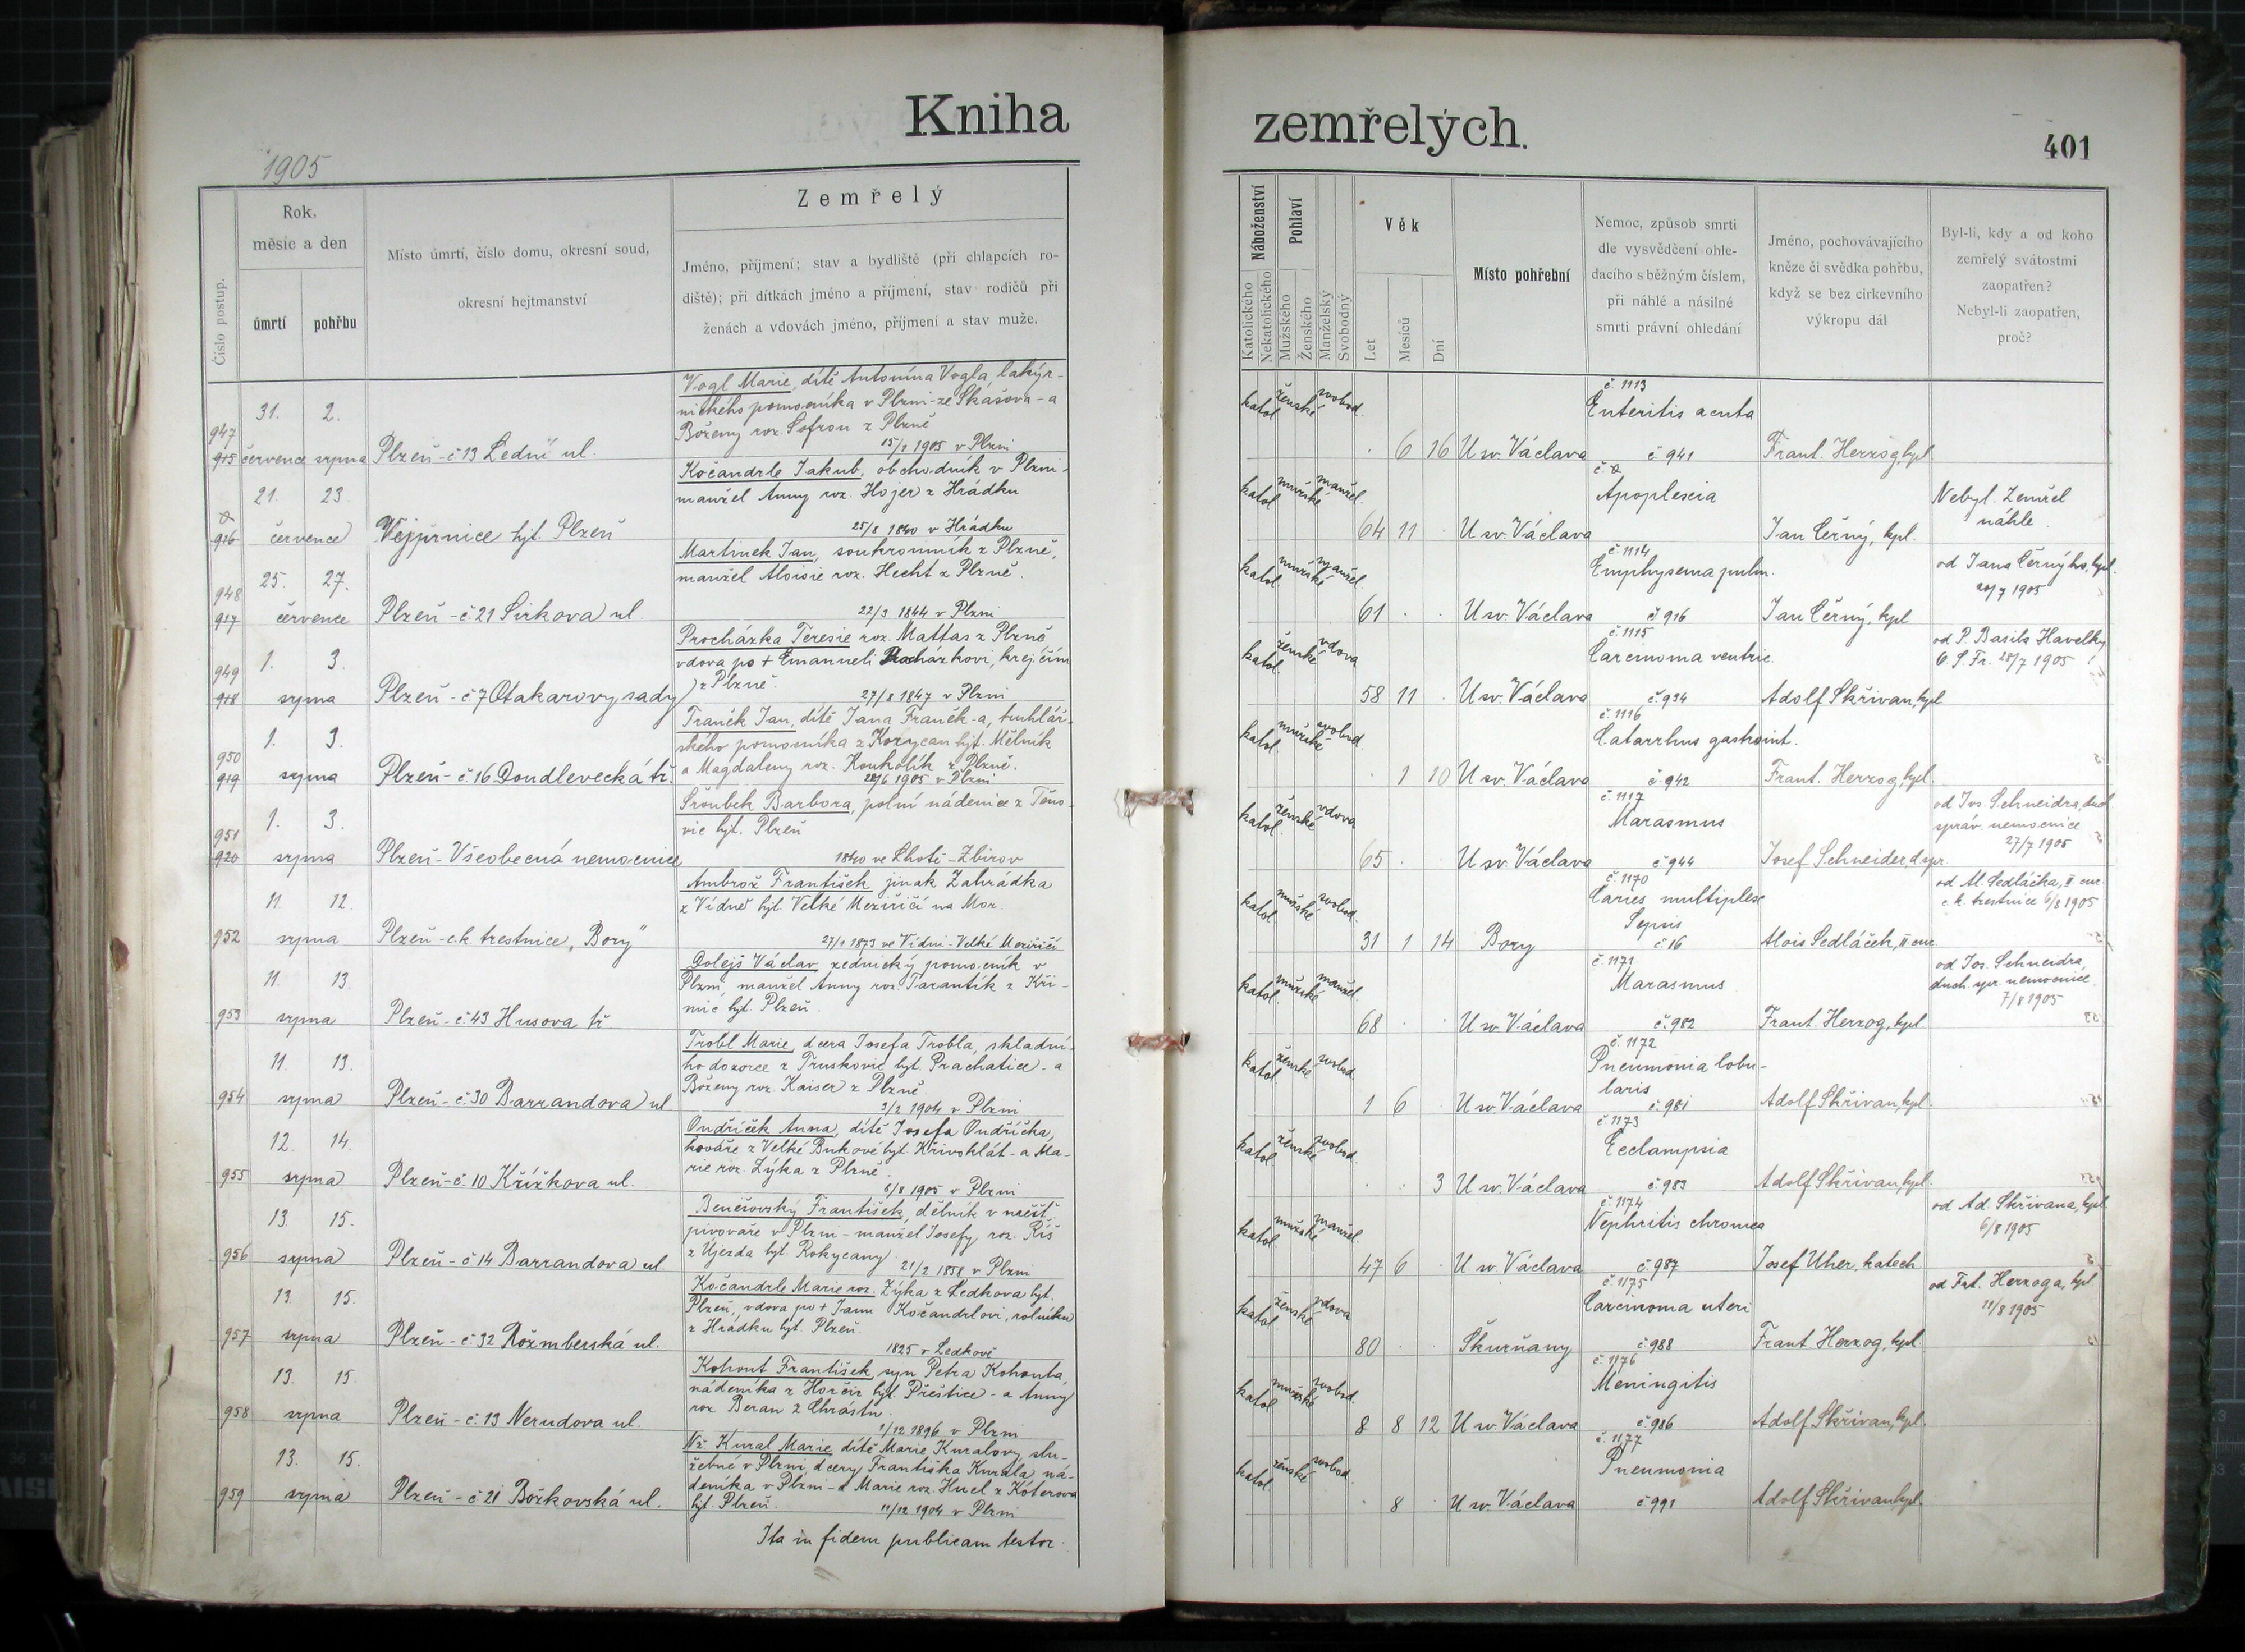 Kniha
1905
Číslo postup.
Rok,
měsíc a den
úmrtí
pohřbu
Místo úmrtí, číslo domu, okresní soud,
okresní hejtmanství
Zemřelý
Jméno, příjmení; stav a bydliště (při chlapcích ro-
diště); při dítkách jméno a příjmení, stav rodičů při
ženách a vdovách jméno, příjmení a stav muže.
31. 2.
947
915 července srpna Plzeň - č. 13 Lední ul.
Vogl Marie, dítě Antonína Vogla, lakýr-
nického pomocníka v Plzni - ze Skašova - a
Boženy roz. Sofron z Plzně
15/1 1905 v Plzni
21. 23.
916 července Vejprnice hjt. Plzeň
Kočandrle Jakub, obchodník v Plzni -
manžel Anny roz. Hojer z Hrádku
25/8 1840 v Hrádku
25. 27.
948
917 července Plzeň - č 21 Sirkova ul.
Martinek Jan, soukromník z Plzně,
manžel Aloisie roz. Hecht z Plzně.
22/3 1844 v Plzni
1. 3.
949
918 srpna Plzeň - č 7 Otakarovy sady
Procházka Teresie roz. Mattas z Plzně
vdova po + Emanueli Procházkovi, krejčím
z Plzně.
27/8 1847 v Plzni
1. 3.
950
919 srpna Plzeň - č 16 Doudlevecká tř.
Franěk Jan, dítě Jana Franěk-a, truhlář-
ského pomocníka z Korycan hjt. Mělník
a Magdaleny roz. Koukolík z Plzně.
22/6 1905 v Plzni
1. 3.
951
920 srpna Plzeň - Všeobecná nemocnice
Šroubek Barbora, polní nádenice z Těno-
vic hjt. Plzeň
1840 ve Lhotě - Zbirov
11. 12.
952 srpna Plzeň - c.k. trestnice „Bory"
Ambrož František jinak Zahrádka
z Vídně hjt. Velké Meziříčí na Mor.
27/1 1873 ve Vídni - Velké Meziříčí
11. 13.
953 srpna Plzeň - č 43 Husova tř
Dolejš Václav, zednický pomocník v
Plzni, manžel Anny roz. Tarantík z Kři-
mic hjt. Plzeň.
11. 13.
954 srpna Plzeň - č. 30 Barrandova ul
Trobl Marie, dcera Josefa Trobla, skladní-
ho dozorce z Truskovic hjt. Prachatice - a
Boženy roz. Kaiser z Plzně.
3/2 1904 v Plzni
12. 14.
955 srpna Plzeň - č. 10 Křížkova ul.
Ondříček Anna, dítě Josefa Ondříčka,
kováře z Velké Bukové hjt. Křivoklát - a Ma-
rie roz. Zýka z Plzně
8/8 1905 v Plzni
13. 15.
956 srpna Plzeň - č 14 Barrandova ul.
Benešovský František, dělník v měšť.
pivovaře v Plzni - manžel Josefy roz. Říš
z Újezda hjt. Rokycany.
21/2 1858 v Plzni
13. 15.
957 srpna Plzeň - č 32 Rožmberská ul.
Kočandrle Marie roz. Zýka z Ledkova hjt.
Plzeň, vdova po + Janu Kočandrlovi, rolníku
z Hrádku hjt. Plzeň.
1825 v Ledkově
13. 15.
958 srpna Plzeň - č. 13 Nerudova ul.
Kohout František, syn Petra Kohouta,
nádeníka z Horšic hjt. Přeštice - a Anny
roz. Beran z Chrástu
1/12 1896 v Plzni
13. 15.
959 srpna Plzeň - č 21 Božkovská ul.
Nž. Kural Marie dítě Marie Kuralovy, slu-
žebné v Plzni dcery Františka Kurala ná-
deníka v Plzni - a Marie roz. Hucl z Koterova
hjt. Plzeň.
11/12 1904 v Plzni
Ita in fidem publicam testor.
zemřelých.
401
Náboženství
Katolického
Nekatolického
Pohlaví
Mužského
Ženského
Manželský
Svobodný
Věk
Let
Měsíců
Dní
Místo pohřební
Nemoc, způsob smrti
dle vysvědčení ohle-
dacího s běžným číslem,
při náhlé a násilné
smrti právní ohledání
Jméno, pochovávajícího
kněze či svědka pohřbu,
když se bez církevního
výkropu dál
Byl-li, kdy a od koho
zemřelý svátostmi
zaopatřen?
Nebyl-li zaopatřen,
proč?
č. 1113
katol. ženské svobod. Enteritis acuta
6 16 U sv. Václava č. 941 Frant. Herzog, kpl.
katol. mužské manžel. Apoplexia
Nebyl. Zemřel
náhle.
64 11 U sv. Václava Jan Černý, kpl.
č. 1114
katol. mužské manžel. Emphysema pulm.
od Jana Černýho, kpl.
20/7 1905
61 U sv. Václava č. 916 Jan Černý, kpl
č. 1115
katol. ženské vdova Carcinoma ventric.
od P. Basila Havelky
O. S. Fr. 28/7 1905
58 11 U sv. Václava č. 934 Adolf Skřivan, kpl
č. 1116
katol. mužské svobod. Catarrhus gastroint.
1 10 U sv. Václava č. 942 Frant. Herzog, kpl.
č. 1117
katol. ženské vdova Marasmus
od Jos. Schneidra, duch.
správ. nemocnice
27/7 1905
65 U sv. Václava č. 944 Josef Schneider, d. spr.
č. 1170
katol. mužské svobod. Caries multiplex
Sepsis
od Al. Sedláčka, II cur.
c. k. trestnice 6/8 1905
31 1 14 Bory č 16 Alois Sedláček, II cur.
č. 1171
katol. mužské manžel. Marasmus
od Jos. Schneidra,
duch. spr. nemocnice
7/8 1905
68 U sv. Václava č. 982 Frant. Herzog, kpl.
č. 1172
katol. ženské svobod. Pneumonia lobu-
laris
1 6 U sv. Václava č. 981 Adolf Skřivan, kpl.
č. 1173
katol. ženské svobod. Eclampsia
3 U sv. Václava č. 983 Adolf Skřivan, kpl.
č. 1174
katol. mužské manžel. Nephritis chronica
od Ad. Skřivana, kpl.
6/8 1905
47 6 U sv. Václava č. 987 Josef Uher, katech
č. 1175
katol. ženské vdova Carcinoma uteri
od Frt. Herzoga, kpl.
11/8 1905
80 Skurňany č. 988 Frant. Herzog, kpl.
č. 1176
katol. mužské svobod. Meningitis
8 8 12 U sv. Václava č. 986 Adolf Skřivan, kpl.
č. 1177
katol. ženské svobod. Pneumonia
8 U sv. Václava č 991 Adolf Skřivan, kpl.